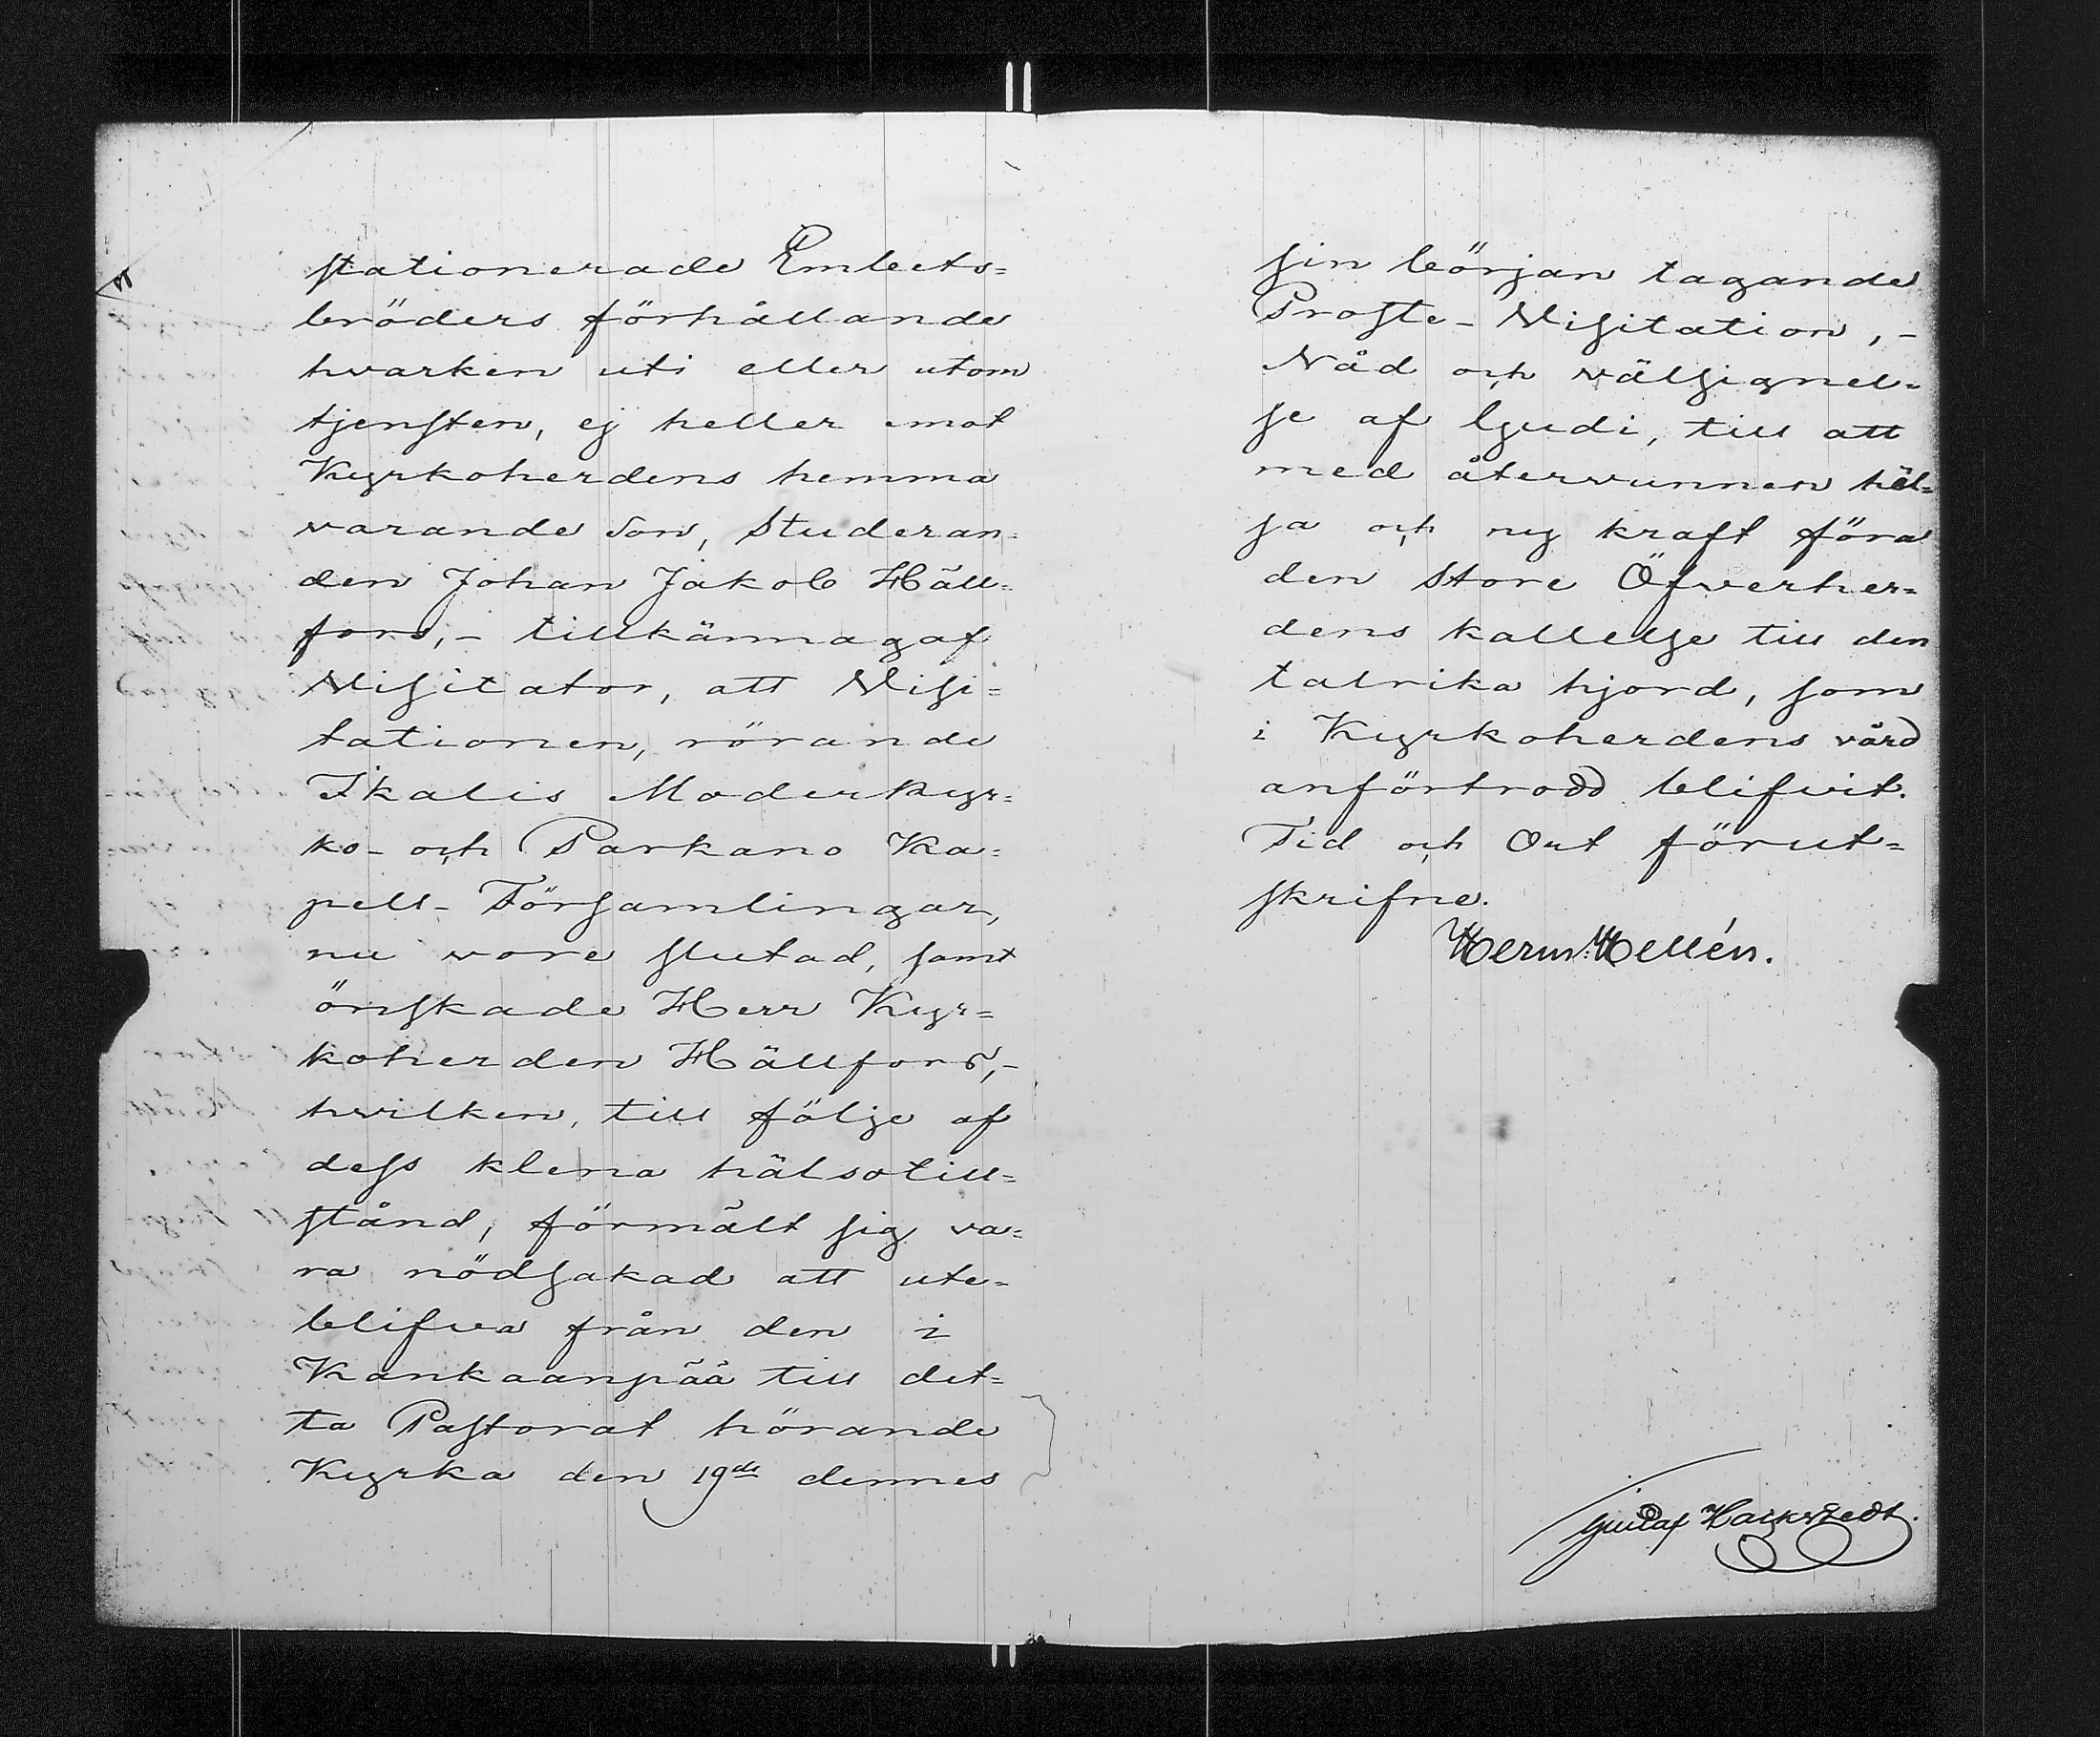 stationerade Embets=
bröders förhållande
hvarken uti eller utom
tjensten, ej heller emot
Kyrkoherdens hemma
varande Son, Studeran=
den Johan Jakob Häll=
fors,- tillkännagaf
Visitator, att Visi=
tationen, rörande
Ikalis Moderkyr=
ko- och Parkano Ka=
pell- Församlingar,
nu vore slutad, samt
önskade Herr Kyr=
koherden Hällfors,-
hvilken, till följe af
dess klena hälsotill=
stånd, förmält sig va=
ra nödsakad att ute=
blifva från den i
Kankaanpää till det=
ta Pastorat hörande
Kyrka den 19de dennes
sin början tagande
Proste-Visitation,-
Nåd och välsignel=
se af Gudi, till att
med återvunnen häl=
sa och ny kraft föra
den Store Öfverher=
dens kallelse till den
talrika hjord, som
i Kyrkoherdens vård
anförtrodd blifvit.
Tid och Ort förut=
skrifne.
Herm: Hellén.
Gustaf